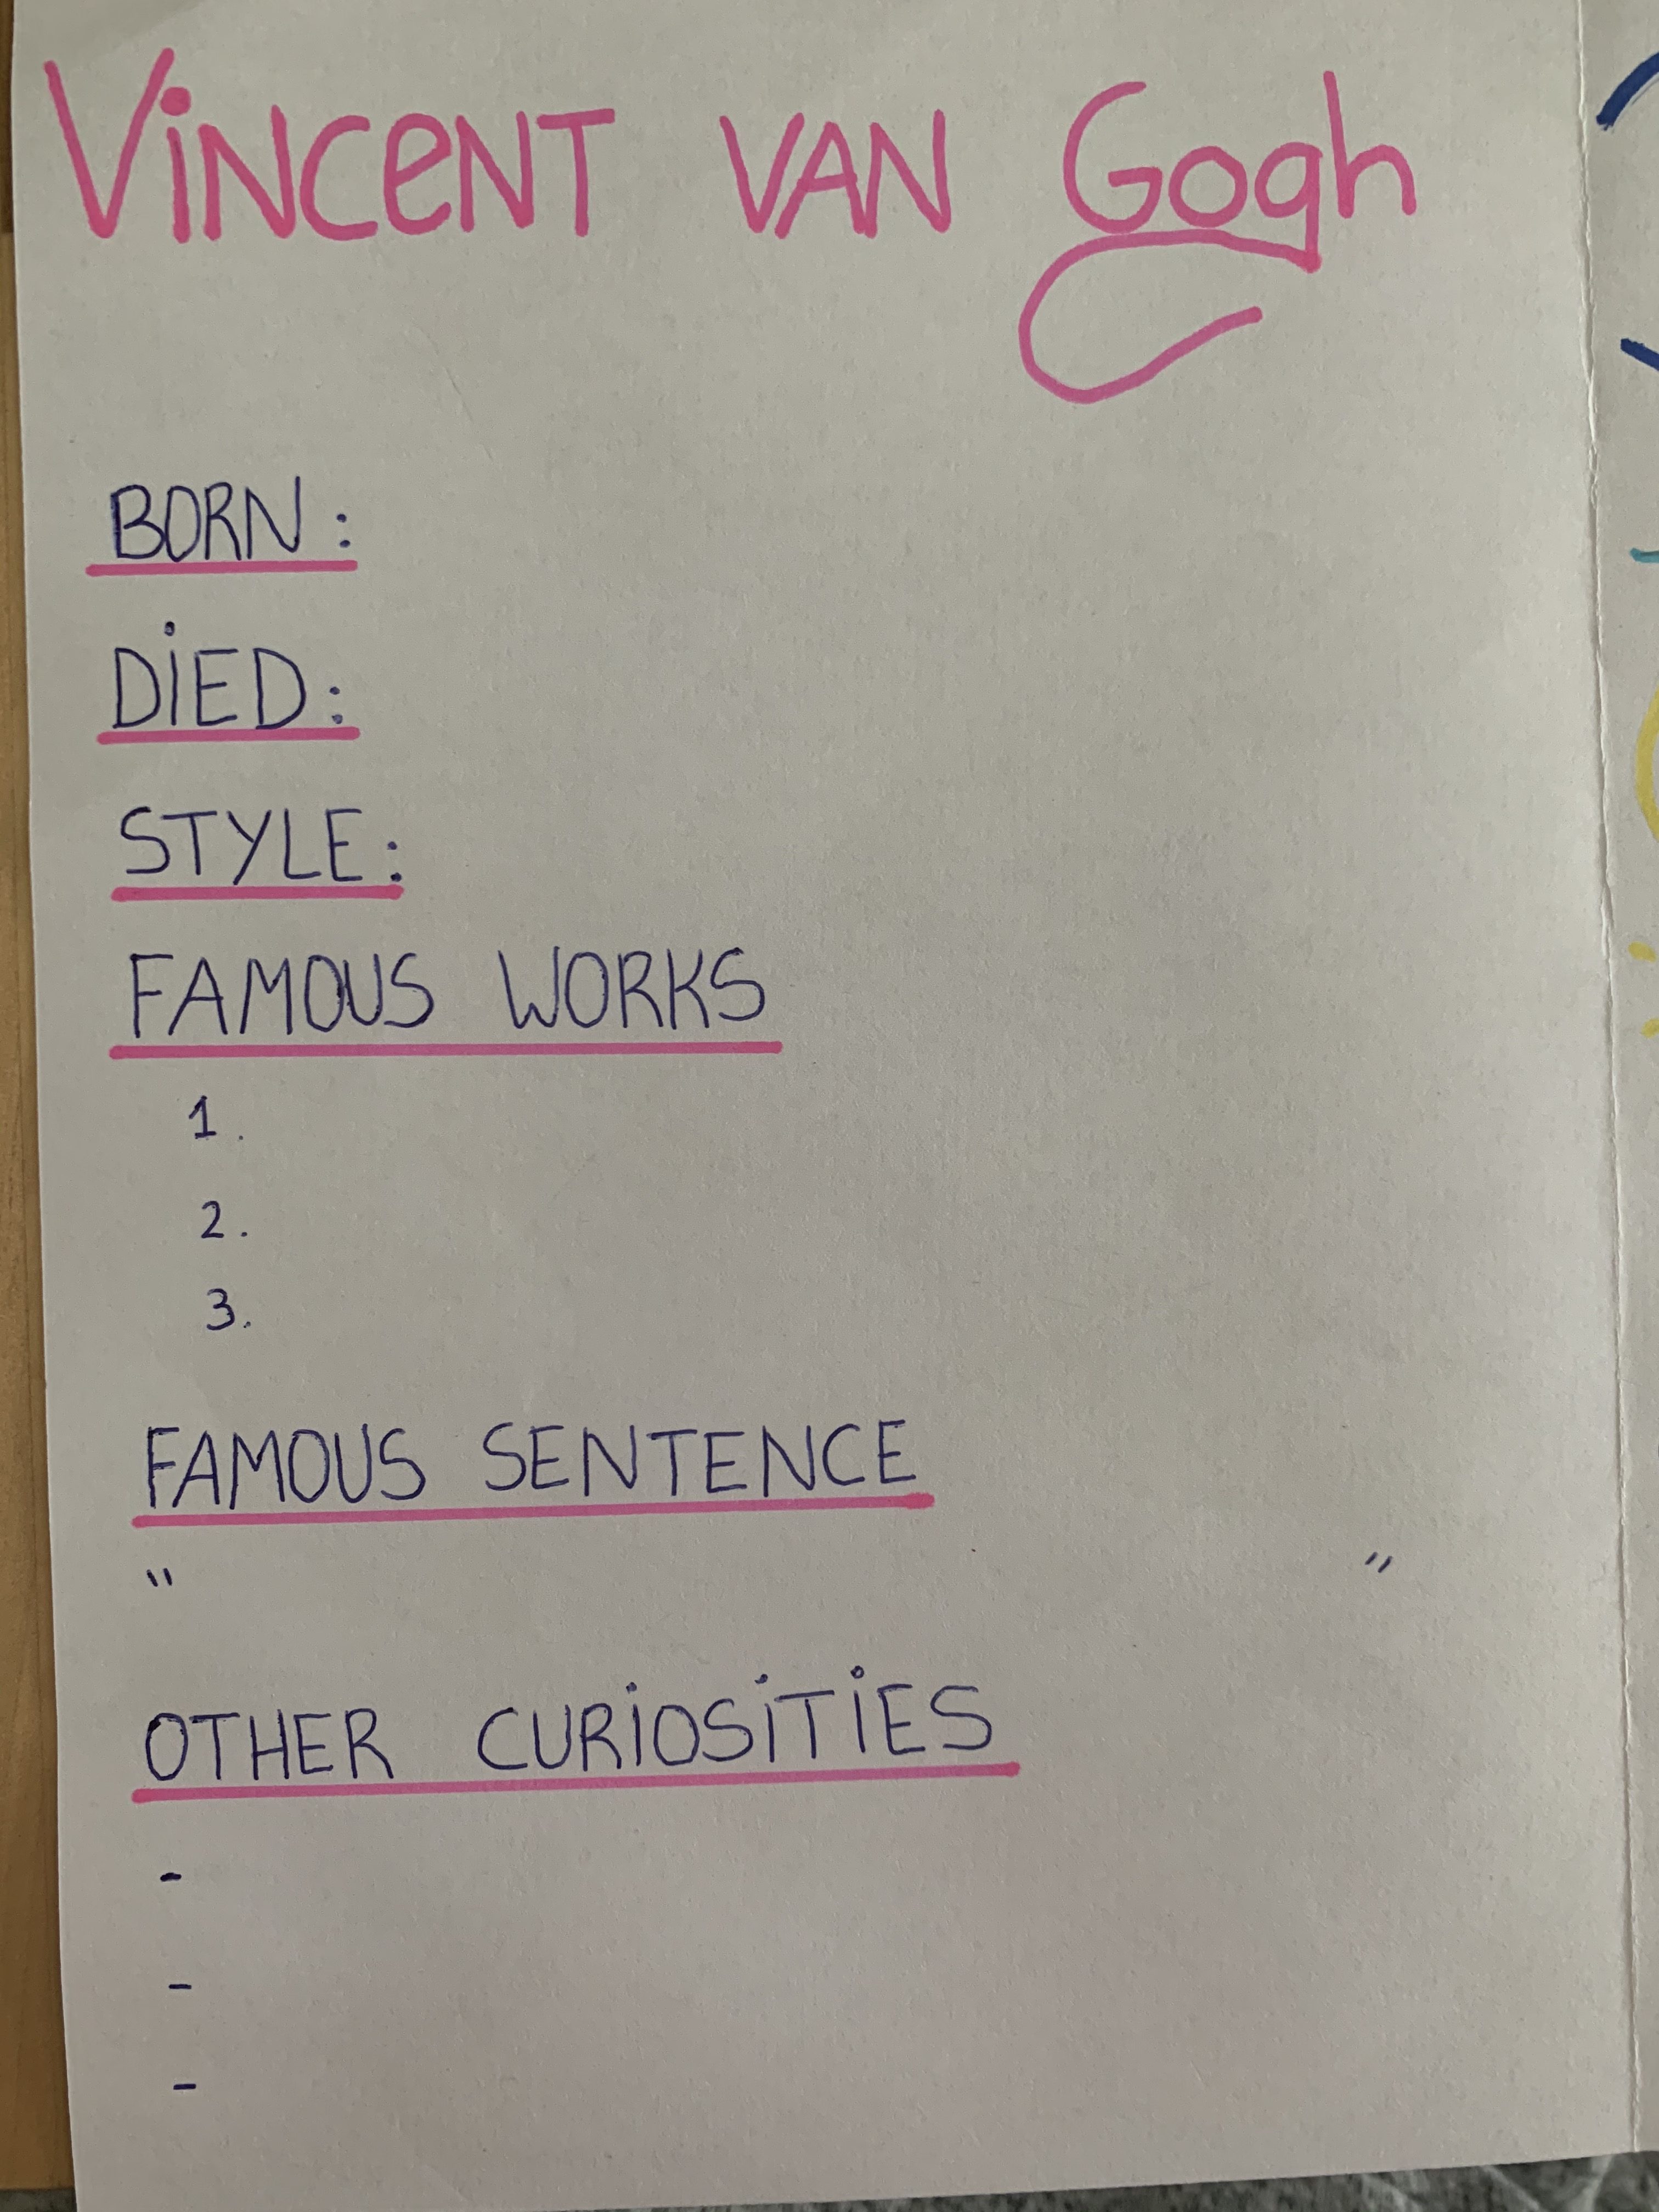 Vincent van Gogh
BORN:
DiED:
STYLE:
FAMOUS WORKS
1.
2.
3.
FAMOUS SENTENCE
" "
OTHER CURiOSiTiES
-
-
-